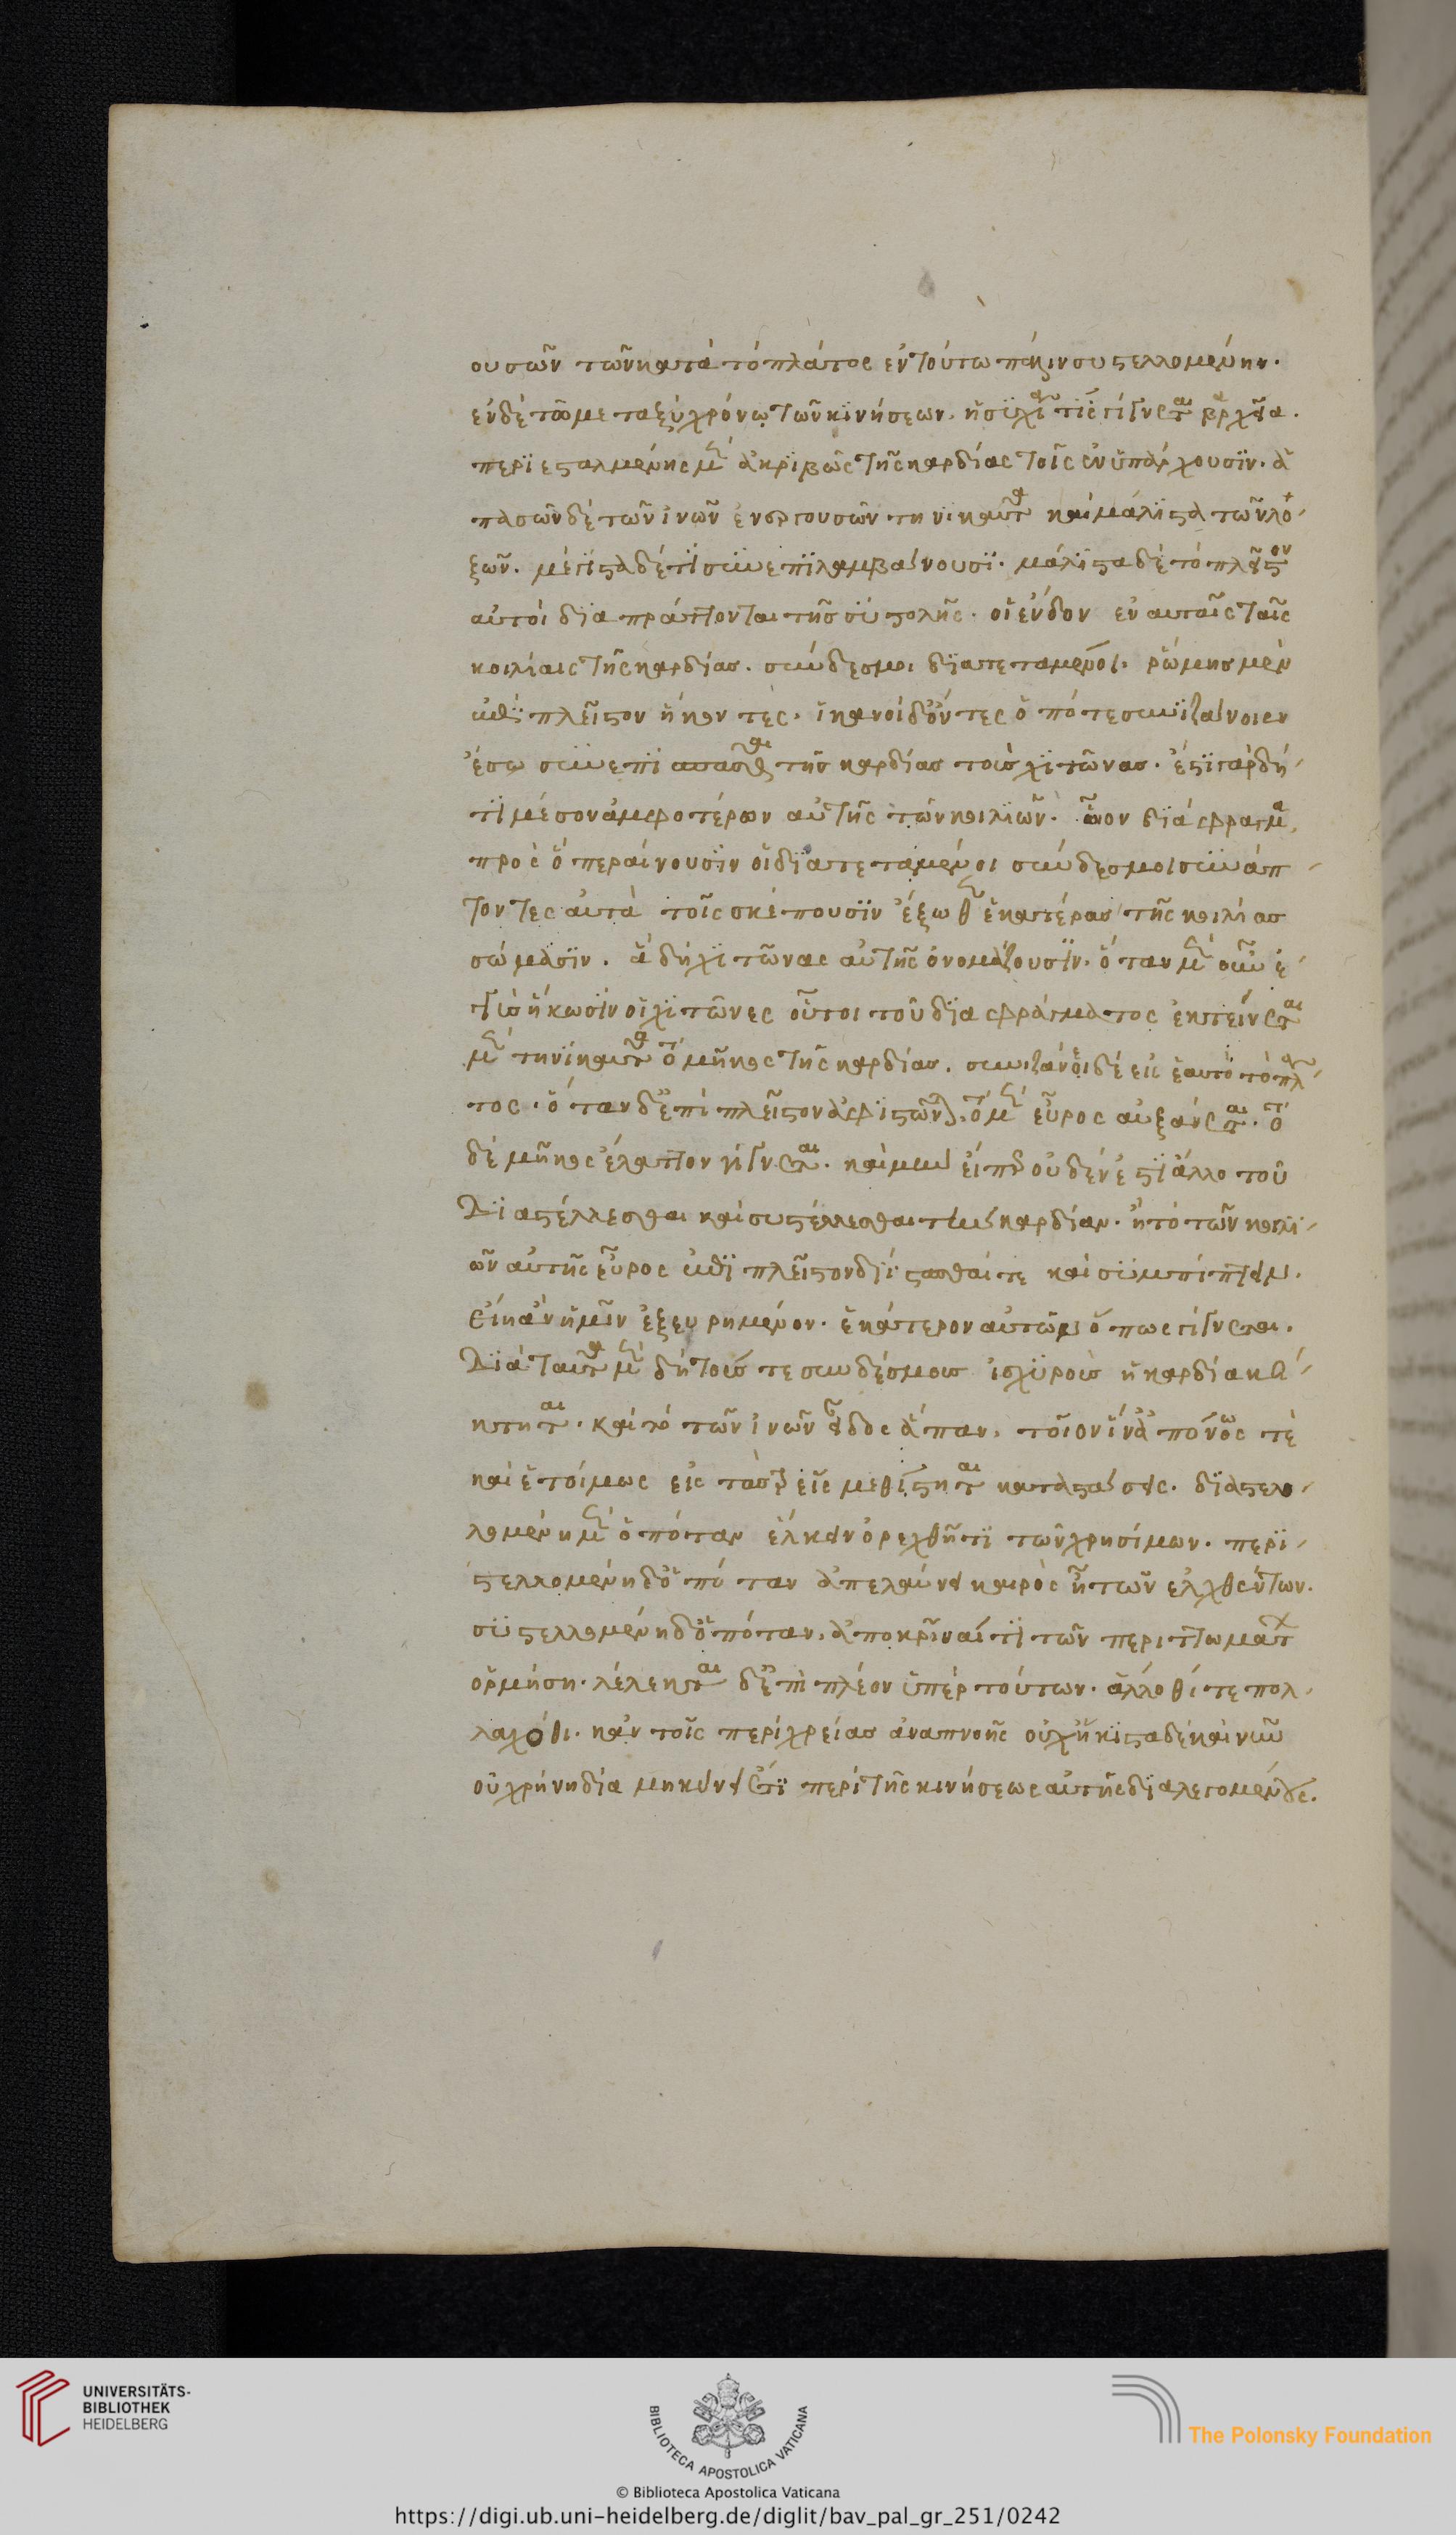 ουσῶν τῶν κατὰ τὸ πλάτος ἐν τούτω πάλιν συστελλομένην.
ἐν δὲ τῶ μεταξὺ χρόνω τῶν κινήσεων. ἡσυχία τίς γίγνεται βραχεῖα.
περιεσταλμένης μὲν ἀκριβῶς τῆς καρδίας τοῖς ἐνυπάρχουσιν. ἁ
πασῶν δὲ τῶν ἰνῶν ἐνεργουσῶν τηνικαῦτα καὶ μάλιστα τῶν λο
ξῶν. μέγιστα δέ τι συνεπιλαμβάνουσι. μάλιστα δὲ τὸ πλεῖστον
αὐτοὶ διαπράττονται τῆς συστολῆς. οἱ ἔνδον ἐν αὐταῖς ταῖς
κοιλίαις τῆς καρδίας. σύνδεσμοι διατεταμένοι. ῥώμης μὲν
ἐπὶ πλεῖστον ἥκοντες. ἱκανοὶ δ' ὄντες ὁπότε συνιζάνοιεν
ἔσω συνεπισπᾶσθαι τῆς καρδίας τοὺς χιτῶνας. ἔστι γὰρ δή
τι μέσον ἀμφοτέρων αὐτῆς τῶν κοιλιῶν. οἷον διάφραγμα
πρὸς ὃ περαίνουσιν οἱ διατεταμένοι σύνδεσμοι συνάπ
τοντες αὐτὰ τοῖς σκέπουσιν ἔξωθεν ἑκατέρας τῆς κοιλίας
σώμασιν. ἃ δὴ χιτῶνας αὐτῆς ὀνομάζουσιν. ὅταν μὲν οὖν ἐ
γγὺς ἥκωσιν οἱ χιτῶνες οὗτοι τοῦ διαφράγματος ἐκτείνεται
μὲν τηνικαῦτα τὸ μῆκος τῆς καρδίας. συνιζάνει δὲ εἰς ἑαυτὸ τὸ πλά
τος. ὅταν δ' ἐπὶ πλεῖστον ἀφιστῶνται. τὸ μὲν εὖρος αὐξάνεται. τὸ
δὲ μῆκος ἔλαττον γίγνεται. καὶ μὴν εἴπερ οὐδὲν ἔστι ἄλλο τοῦ
Διαστέλλεσθαι καὶ συστέλλεσθαι τὴν καρδίαν. ἢ τὸ τῶν κοιλι
ῶν αὐτῆς εὖρος ἐπὶ πλεῖστον διίστασθαί τε καὶ συμπίπτειν.
Εἴη ἂν ἡμῖν ἐξευρημένον. ἑκάτερον αὐτῶν ὅπως γίγνεται.
Διὰ ταῦτα μὲν δὴ τοῖς τε συνδέσμοις ἰσχυροῖς ἡ καρδία κέ
κτηται. καὶ τὸ τῶν ἰνῶν εἶδος ἅπαν. τοῖον ἵν' ἀπόνως τὲ
καὶ ἑτοίμως εἰς τὰς τρεῖς μεθίστηται καταστάσεις. διαστελ
λομένη μὲν ὁπόταν ἕλκειν ὀρεχθῆ τι τῶν χρησίμων. περι
στελλομένη δ' ὁπόταν ἀπελαύνει καιρὸς ᾖ τῶν ἑλχθέντων.
συστελλομένη δ' ὁπόταν. ἀποκρῖναί τι τῶν περιττωμάτων
ὁρμήση. λέλεκται δ' ἐπὶ πλέον ὑπὲρ τούτων. ἄλλοθί τε πολ
λαχόθι. κἀν τοῖς περὶ χρείας ἀναπνοῆς οὐχ ἥκιστα δὲ καὶ νῦν
οὐ χρὴ νηδία μηκύνειν ἔτι περὶ τῆς κινήσεως αὐτῆς διαλεγομένους.
UNIVERSITÄTS-
BIBLIOTHEK
HEIDELBERG
BIBLIOTECA APOSTOLICA VATICANA
The Polonsky Foundation
© Biblioteca Apostolica Vaticana
https://digi.ub.uni-heidelberg.de/diglit/bav_pal_gr_251/0242